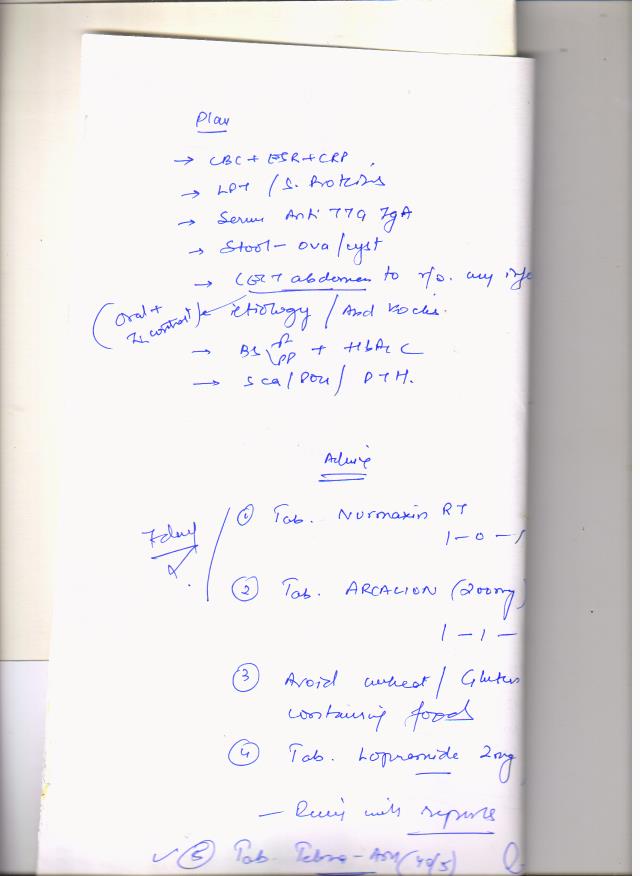 Plan
→ CBC + ESR + CRP
→ LFT / S. Proteins
→ Serum Anti TTG IgA
→ Stool - ova/cyst
→ CECT abdomen to r/o. any
(oral + contrast) etiology / Abd Kochs.
→ BS F PP + HbA1C
→ S Ca / PO4 / PTH.
Advice
① Tab. Normaxin RT
1 - 0 - 1
7 days
② Tab. ARCALION (200mg)
1 - 1 -
③ Avoid wheat / Gluten
containing food
④ Tab. Lopramide 2mg
- Review with reports
✓ ⑤ Tab. (40/5)